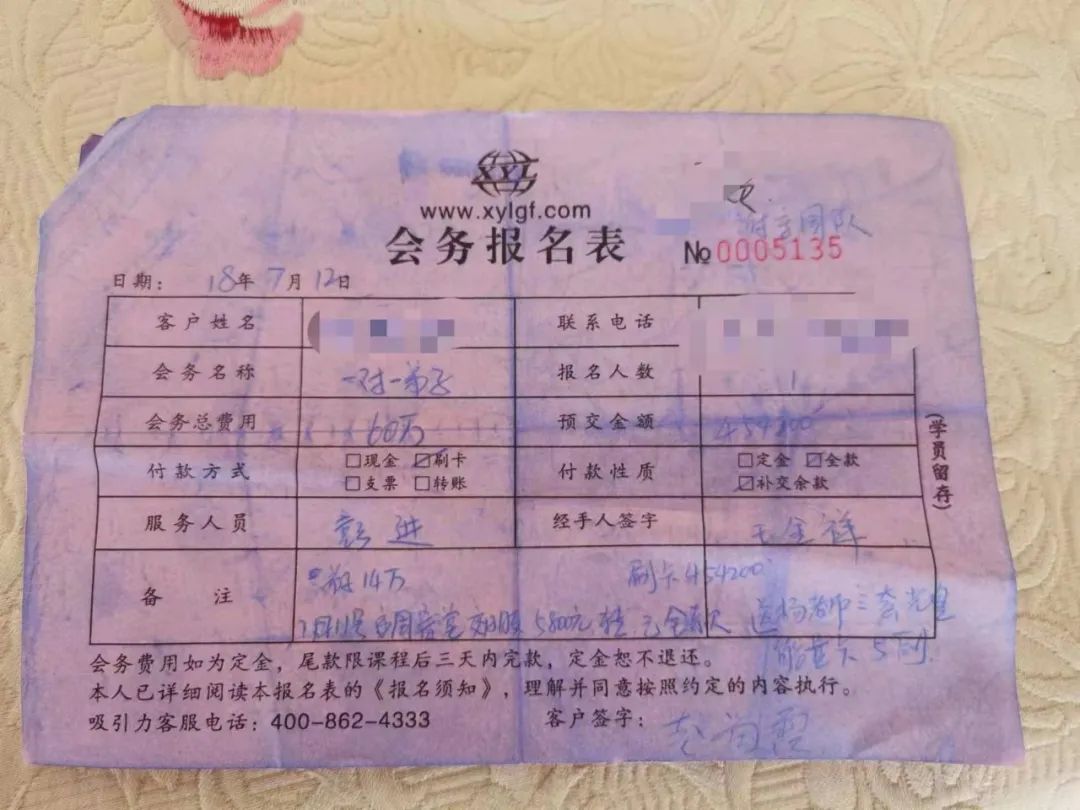 XYL
www.xylgf.com
会务报名表 № 0005135
团队
日期: 18年 7月 12日
客户姓名 联系电话
会务名称 一对一弟子 报名人数 1
会务总费用 60万 预交金额 454200
付款方式 □现金 ☑刷卡 □支票 □转账 付款性质 □定金 ☑全款 ☑补交余款
服务人员 彭进 经手人签字 王金祥
备注 14万 刷卡454200
5800元 已全款
(学员留存)
会务费用如为定金，尾款限课程后三天内完款，定金恕不退还。
本人已详细阅读本报名表的《报名须知》，理解并同意按照约定的内容执行。
吸引力客服电话：400-862-4333 客户签字：